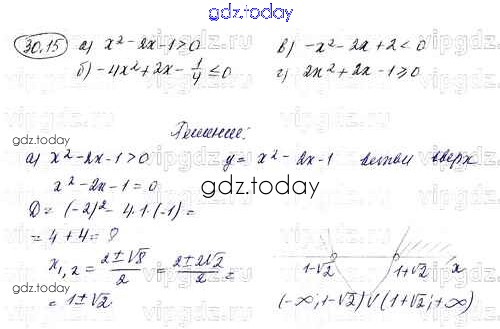 gdz.today
30.15 а) x² - 2x - 1 > 0 в) -x² - 2x + 2 < 0
б) -4x² + 2x - 1/4 ≤ 0 г) 2x² + 2x - 1 ≥ 0
Решение:
gdz.today
а) x² - 2x - 1 > 0 y = x² - 2x - 1 ветви вверх
x² - 2x - 1 = 0
gdz.today
D = (-2)² - 4·1·(-1) =
= 4 + 4 = 8
x₁,₂ = (2 ± √8)/2 = (2 ± 2√2)/2 =
= 1 ± √2
1-√2 1+√2 x
(-∞; 1-√2) ∪ (1+√2; +∞)
gdz.today